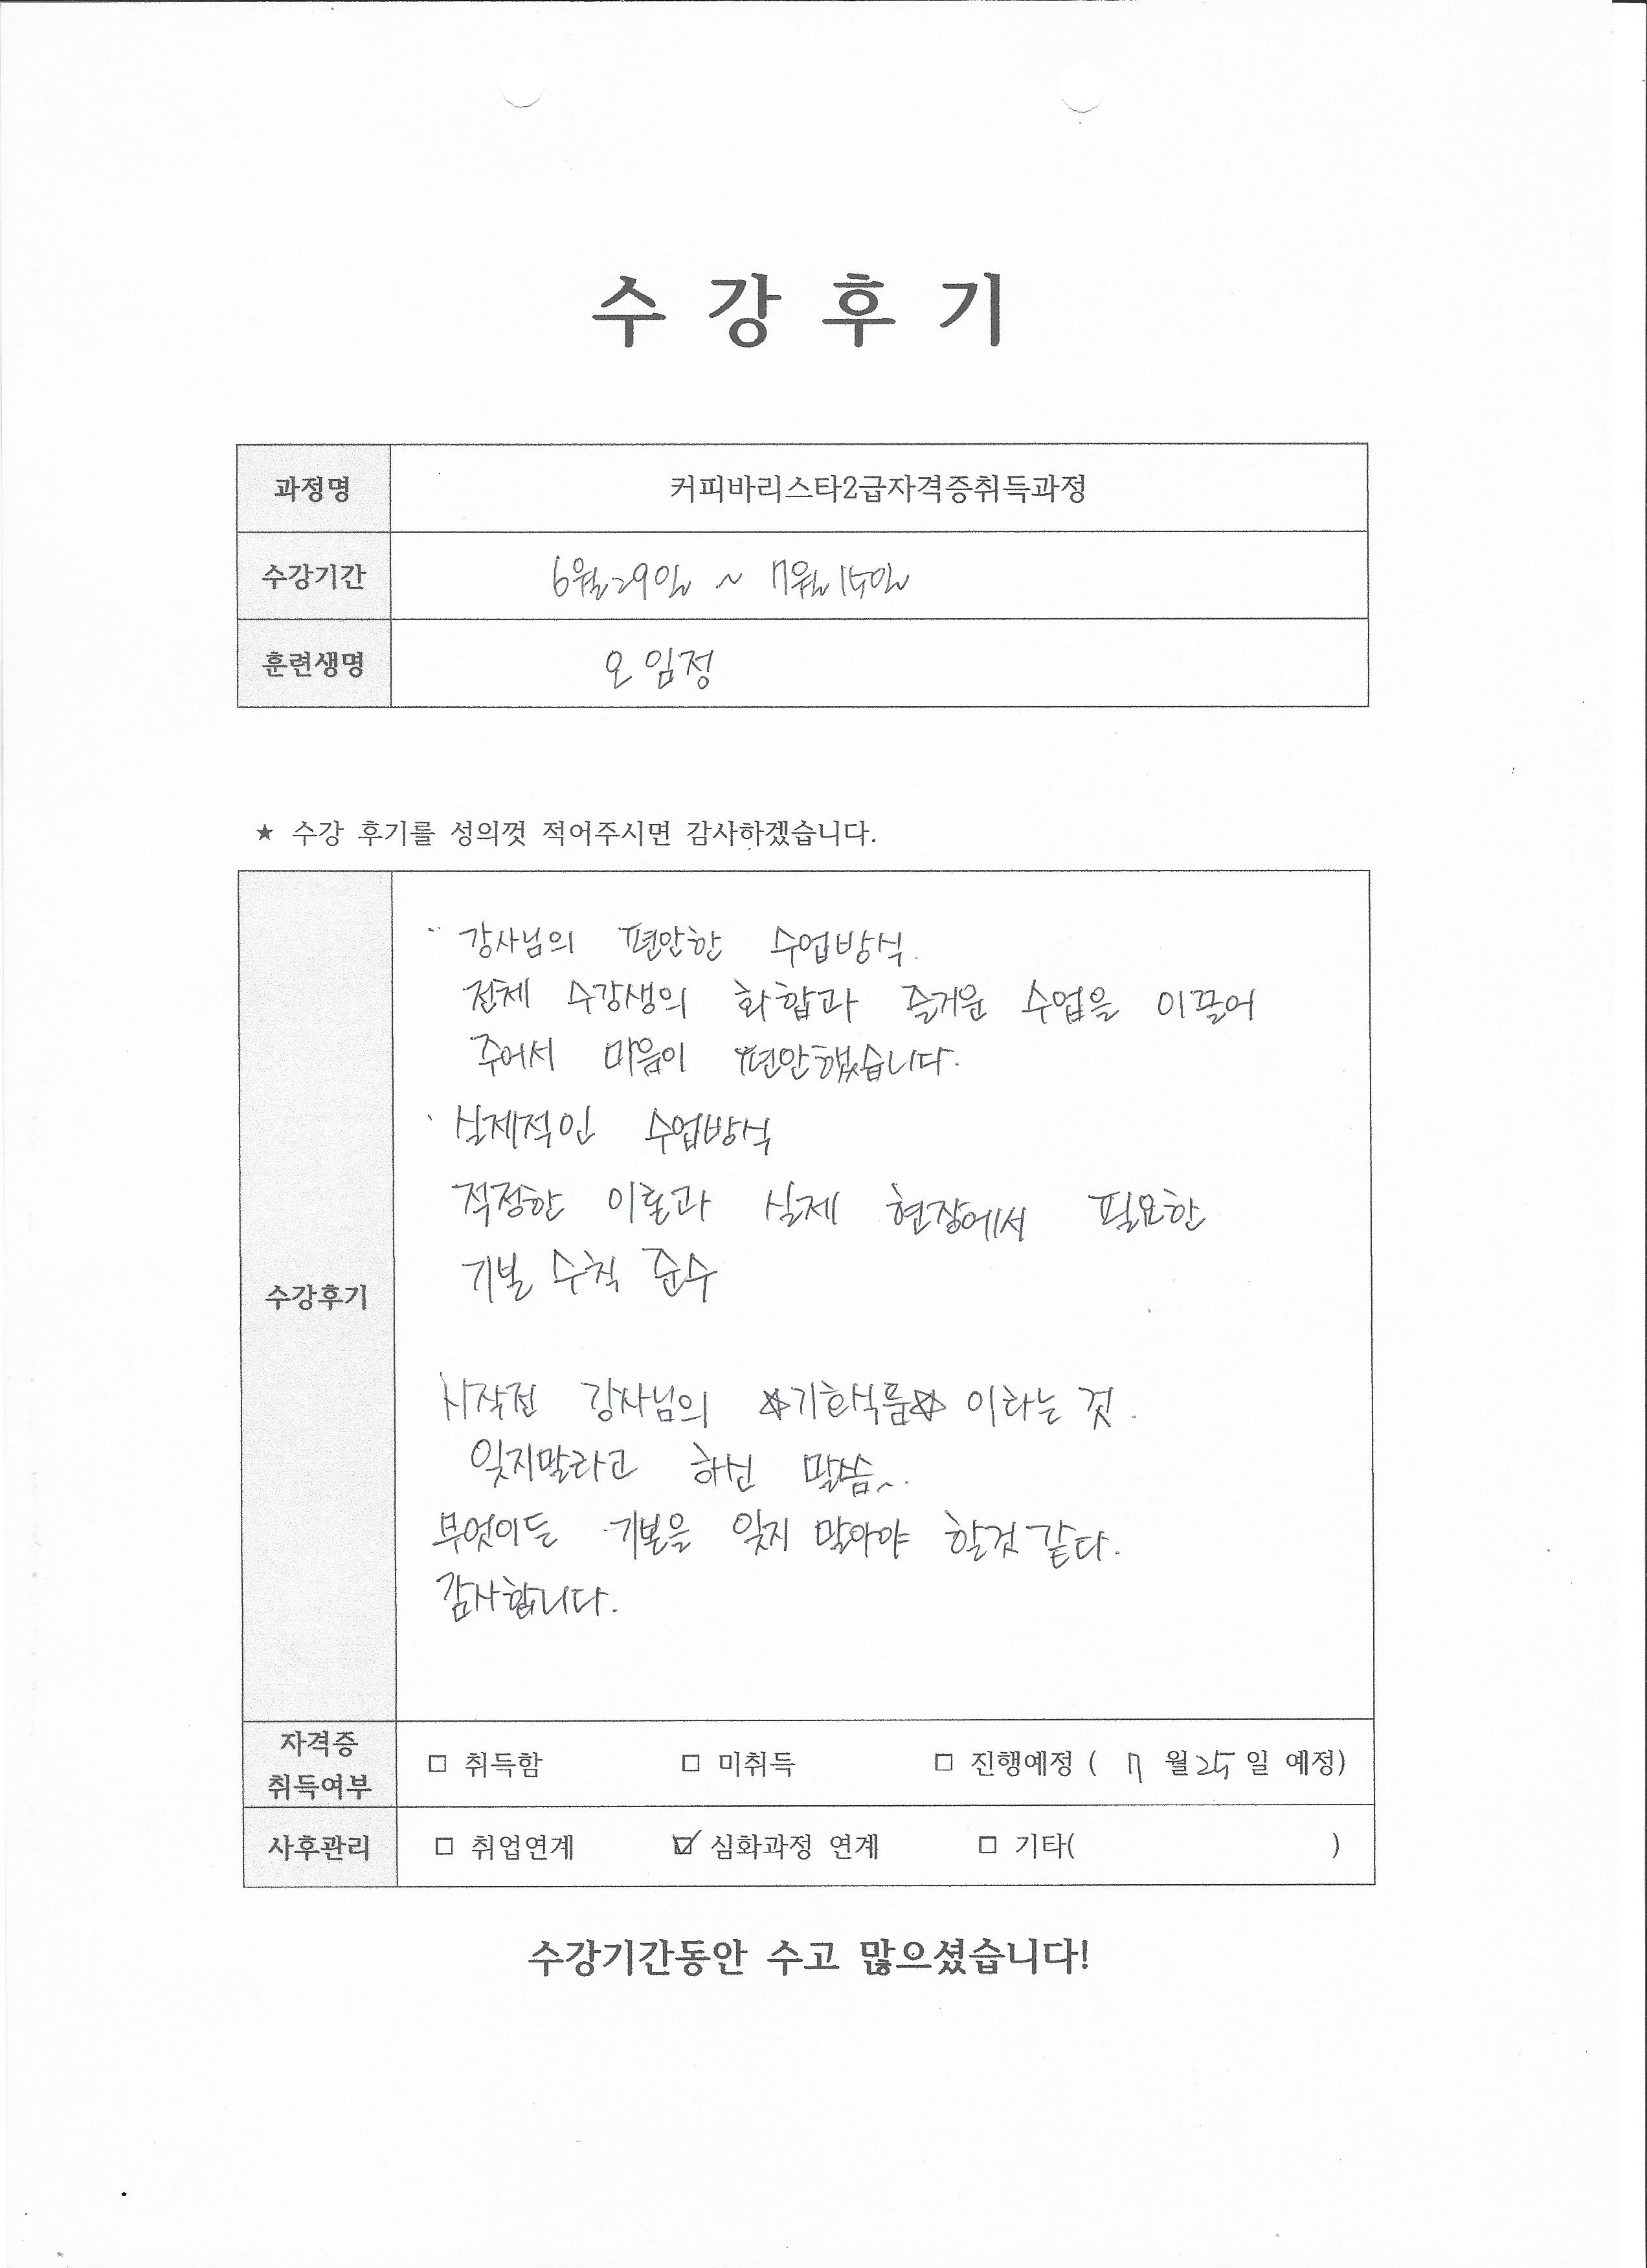 수 강 후 기
과정명 커피바리스타2급자격증취득과정
수강기간 6월29일 ~ 7월15일
훈련생명 오임정
★ 수강 후기를 성의껏 적어주시면 감사하겠습니다.
수강후기
강사님의 편안한 수업방식.
전체 수강생의 화합과 즐거운 수업을 이끌어
주어서 마음이 편안했습니다.
실제적인 수업방식
적정한 이론과 실제 현장에서 필요한
기본 수칙 준수
시작전 강사님의 ☆기호식품☆ 이라는 것.
잊지말라고 하신 말씀~..
무엇이든 기본을 잊지 말아야 할것 같다.
감사합니다.
자격증 취득여부 □ 취득함 □ 미취득 □ 진행예정 ( 7 월 25 일 예정)
사후관리 □ 취업연계 ☑ 심화과정 연계 □ 기타( )
수강기간동안 수고 많으셨습니다!